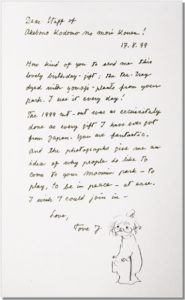 Dear Staff of
Akebono Kodomo no mori Kouen!
17.8.99
How kind of you to send me this
lovely birthday-gift; the tea-tray
dyed with plants from your
park. I use it every day!
The 1999 cut-out was as exquisitely
done as every gift I have ever got
from Japan. You are fantastic.
And the photographs give me an
idea of why people do like to
come to your moomin park – to
play, to be in peace – at ease.
I wish I could join in –
Love,
Tove J.